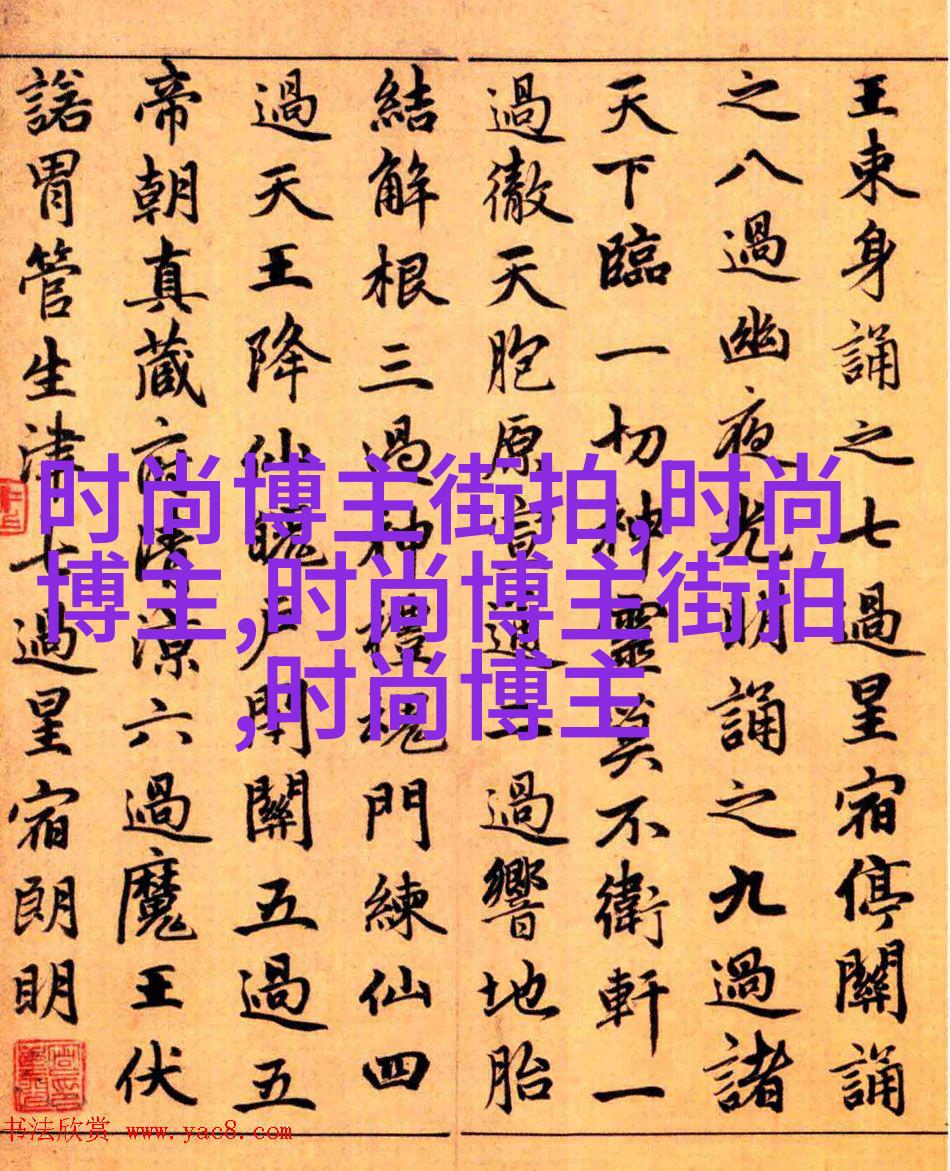 王東身誦之七過星宿停關誦
之八過幽夜光明誦之九過諸
天下臨一切神靈莫不衛軒一
過徹天胞原宣道二過響地胎
結解根三過神禮魂門練仙四
過天王降仙魄戶開關五過五
帝朝真藏府清涼六過魔王伏
諾胃管生津七過星宿朗明
时尚博主街拍,时尚
博主,时尚博主街拍
,时尚博主
书法欣赏 www.yac8.com